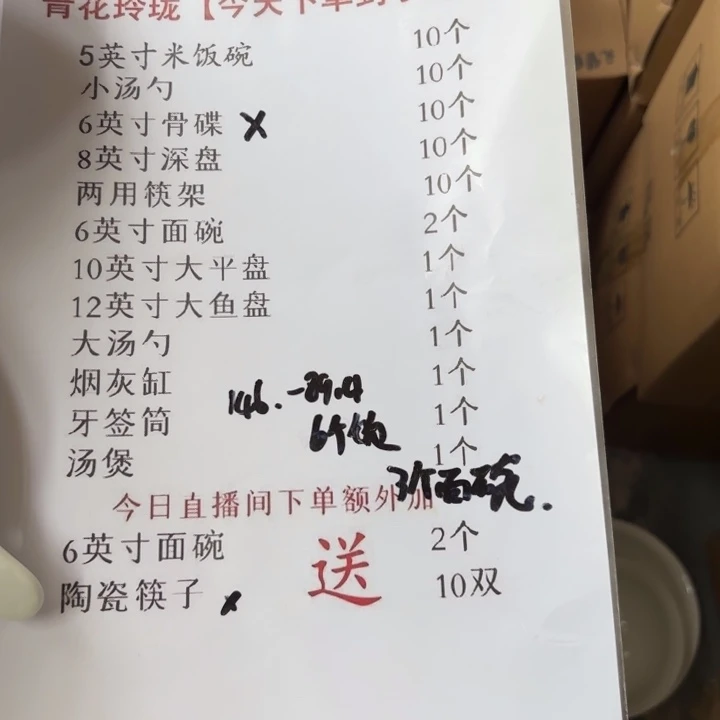 青花玲珑【今天下单到手
5英寸米饭碗 10个
小汤勺 10个
6英寸骨碟 X 10个
8英寸深盘 10个
两用筷架 10个
6英寸面碗 2个
10英寸大平盘 1个
12英寸大鱼盘 1个
大汤勺 1个
烟灰缸 1个
牙签筒 1个
汤煲 1个
146.-89.4
6个饭
3个面碗.
今日直播间下单额外加
送
6英寸面碗 2个
陶瓷筷子 x 10双